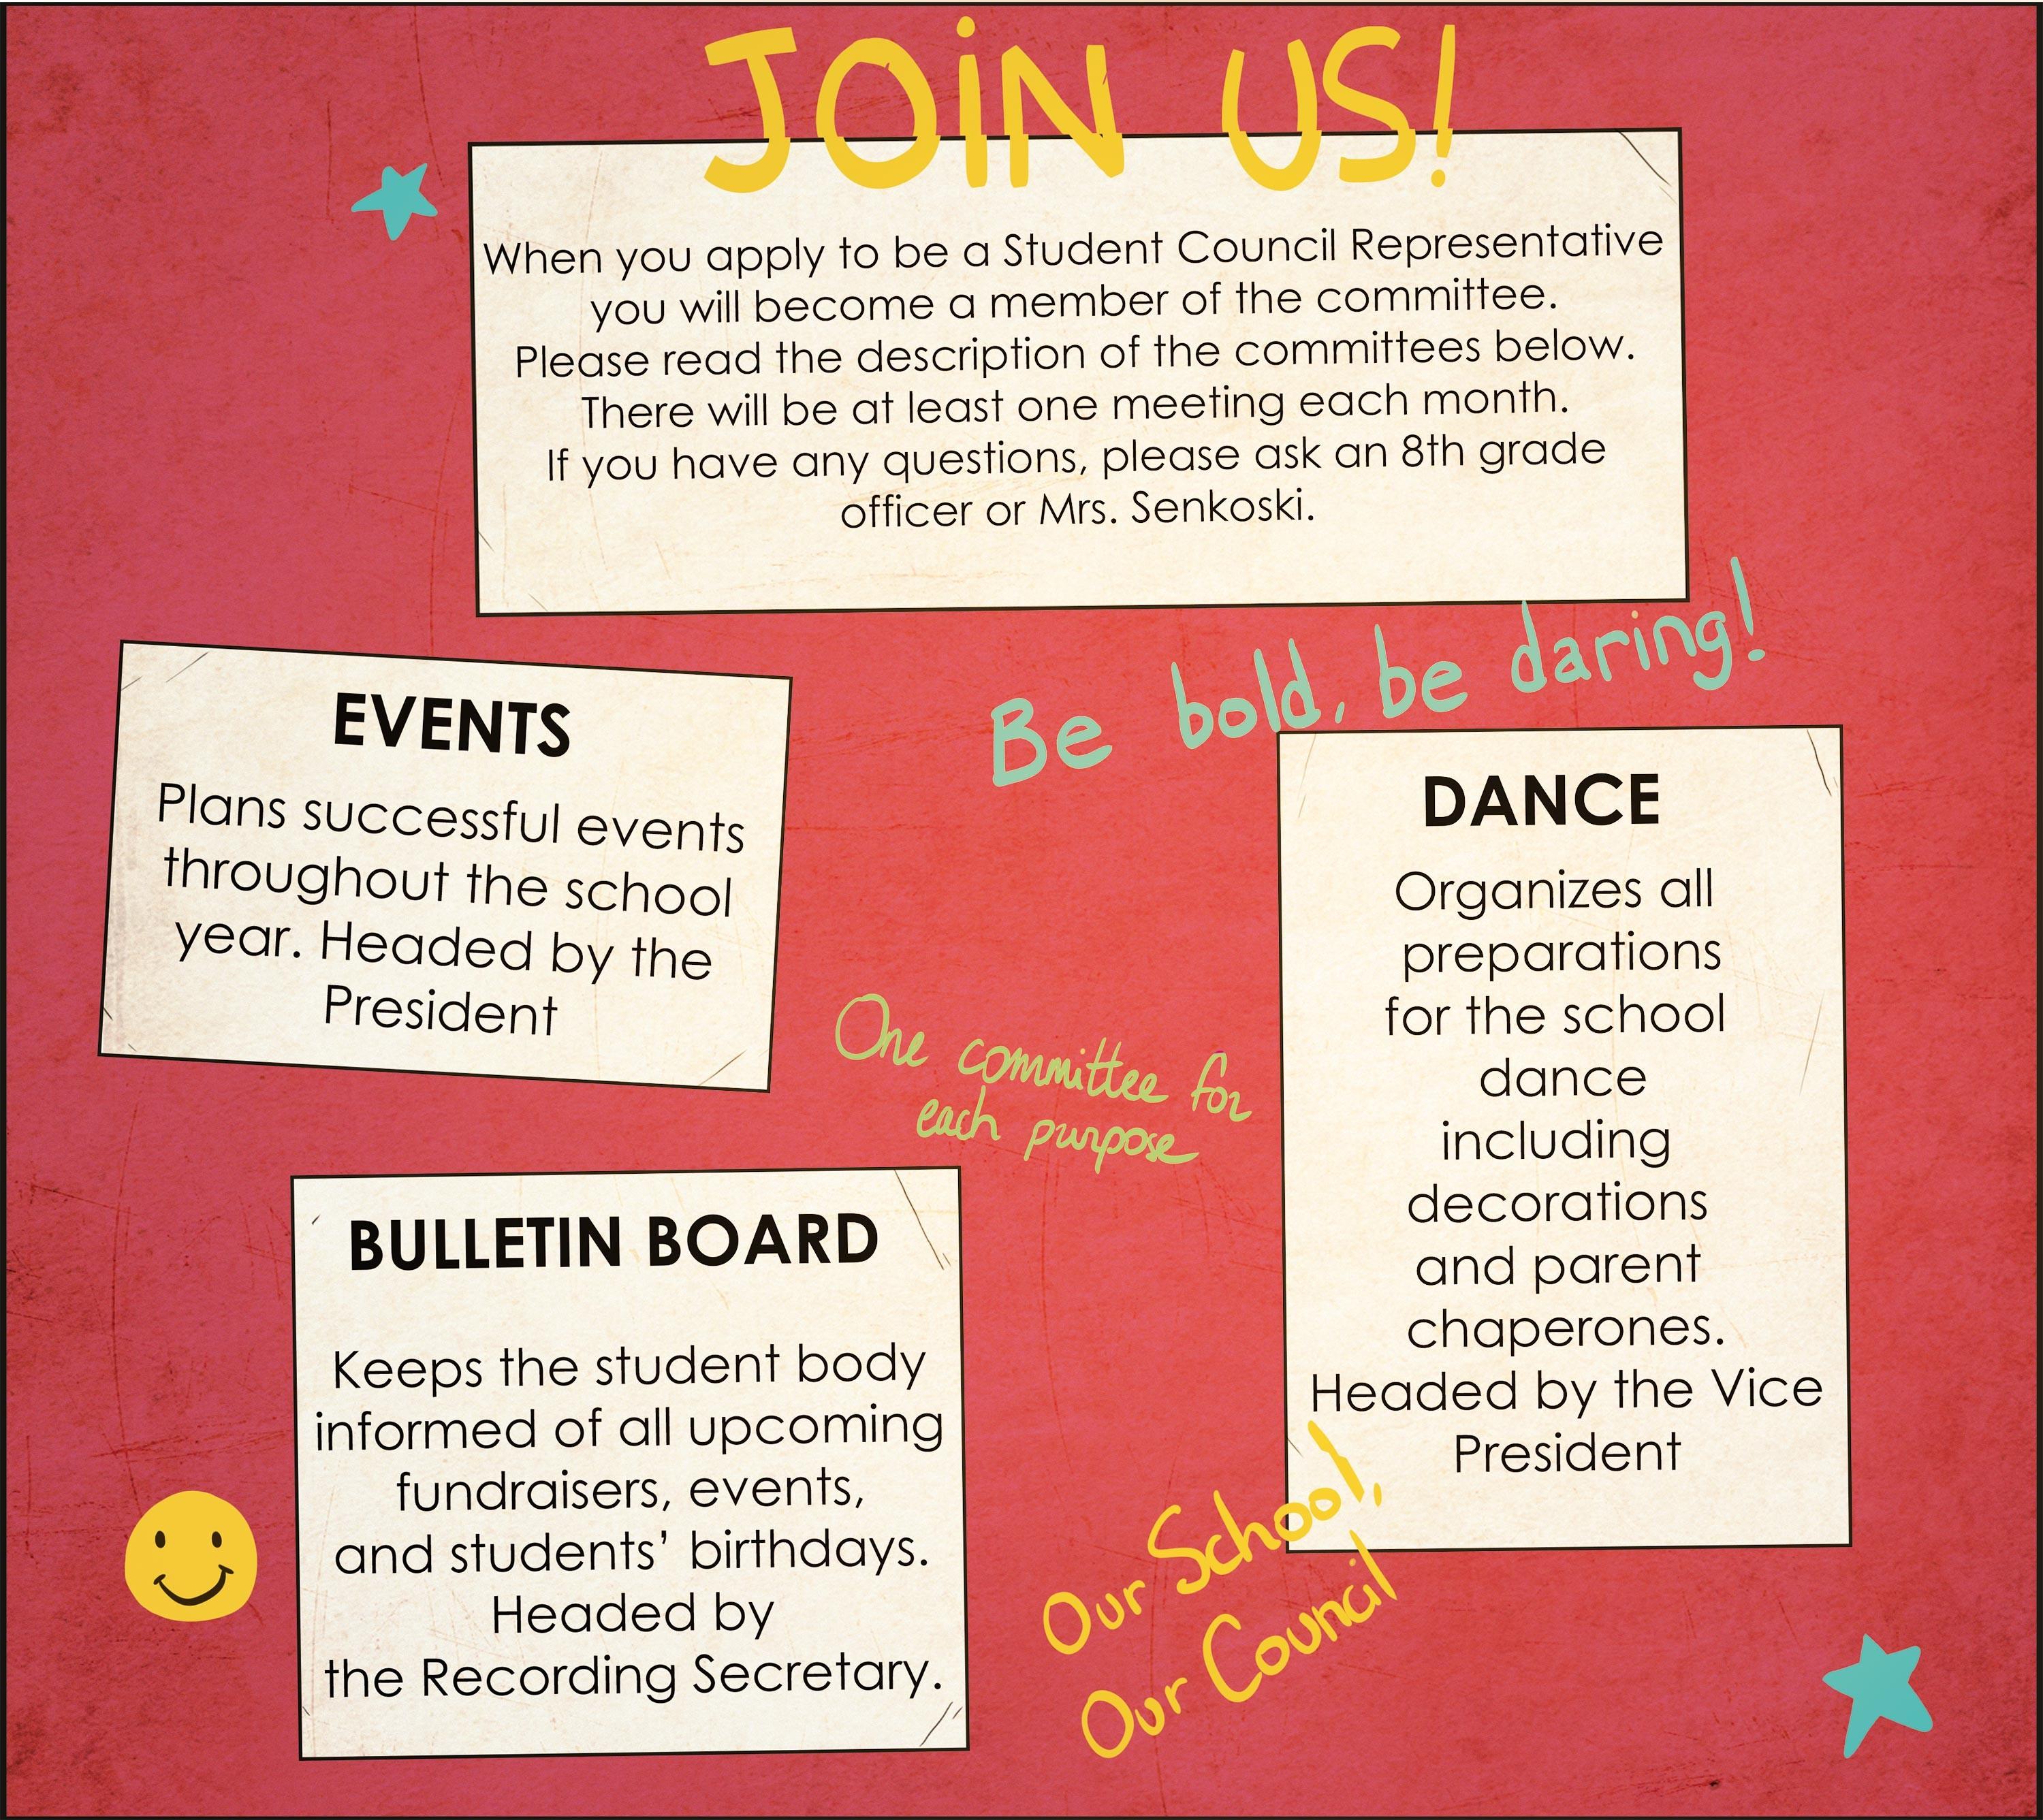 JOiN US!
When you apply to be a Student Council Representative
you will become a member of the committee.
Please read the description of the committees below.
There will be at least one meeting each month.
If you have any questions, please ask an 8th grade
officer or Mrs. Senkoski.
Be bold, be daring!
EVENTS
Plans successful events
throughout the school
year. Headed by the
President
DANCE
Organizes all
preparations
for the school
dance
including
decorations
and parent
chaperones.
Headed by the Vice
President
One committee for
each purpose
BULLETIN BOARD
Keeps the student body
informed of all upcoming
fundraisers, events,
and students’ birthdays.
Headed by
the Recording Secretary.
Our School,
Our Council